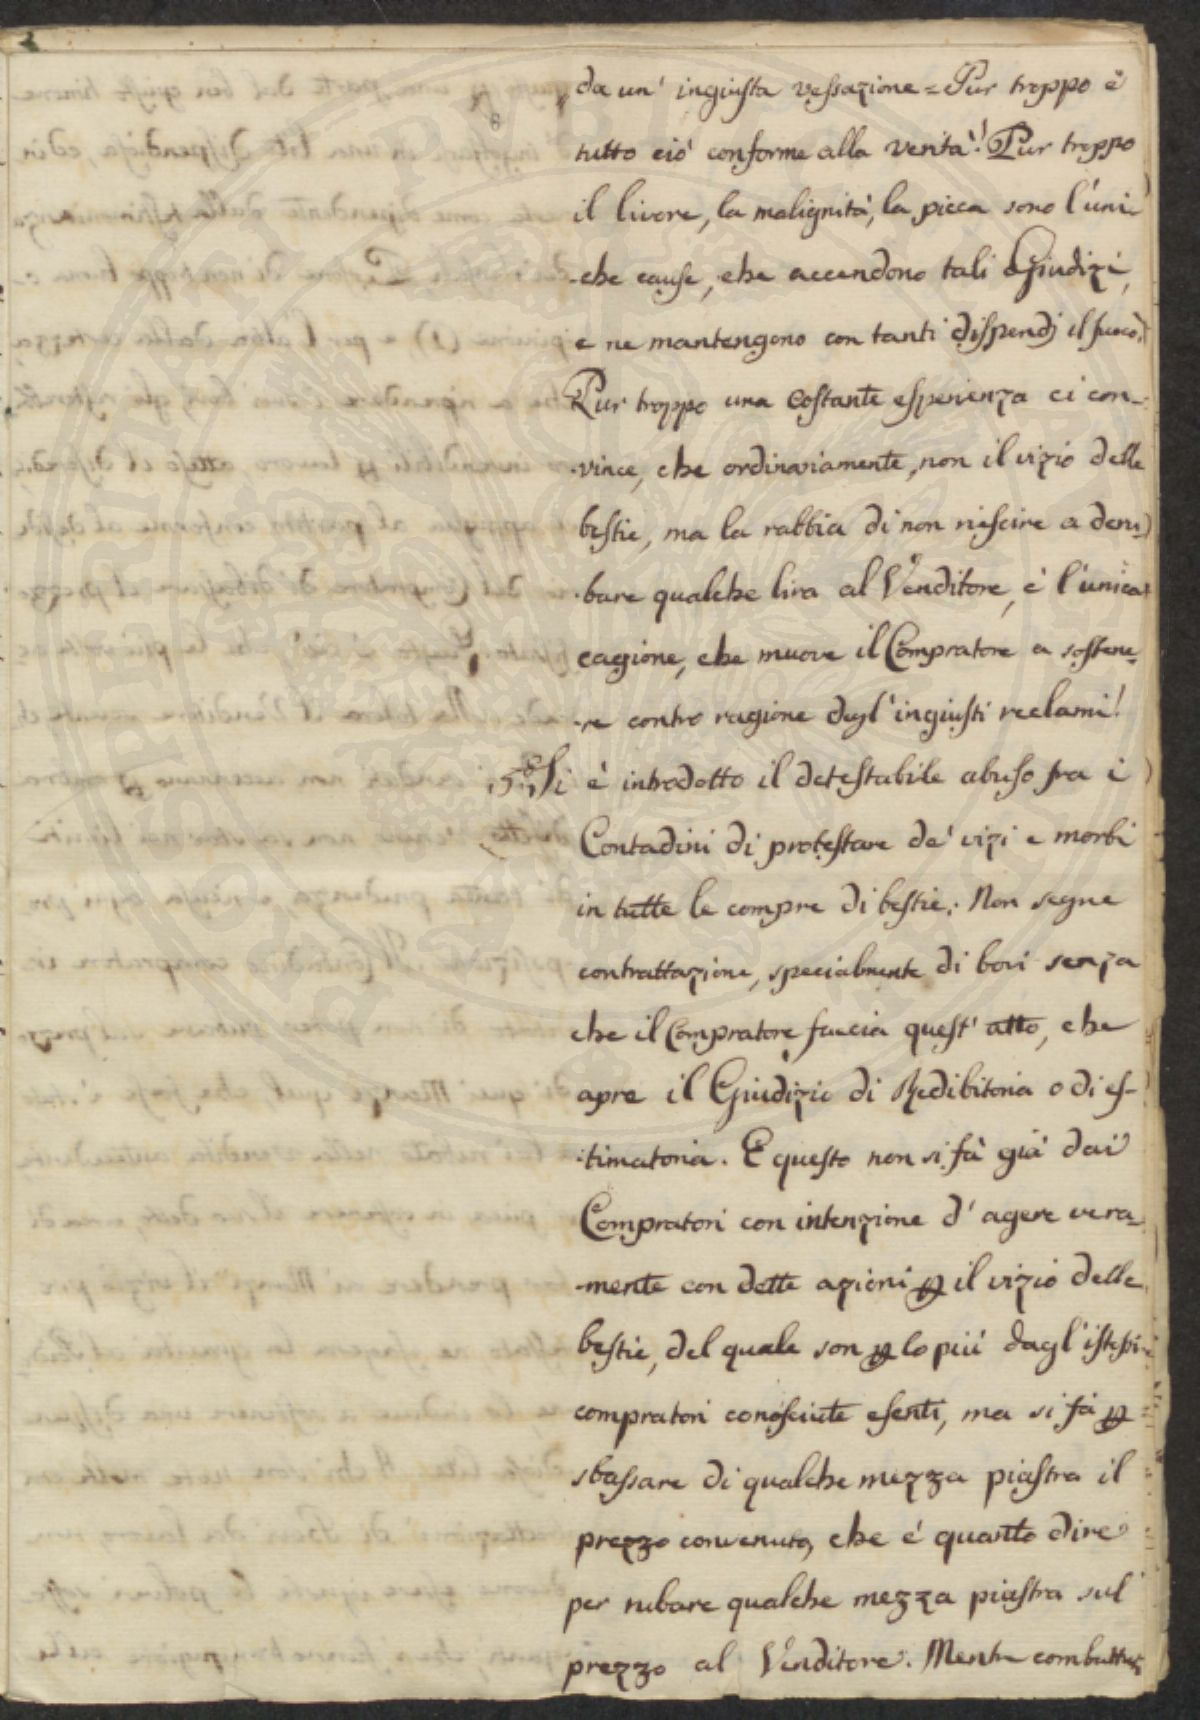 da un' ingiusta vessazione = Pur troppo è
tutto ciò conforme alla verità! Pur troppo
il livore, la malignità, la picca sono l'uni-
-che cause, che accendono tali Giudizi,
e ne mantengono con tanti dispendj il fuoco.
Pur troppo una costante esperienza ci con-
-vince, che ordinariamente, non il vizio delle
bestie, ma la rabbia di non riescire a deru-
-bare qualche lira al Venditore, è l'unica
cagione, che muove il Compratore a sostene-
-re contro ragione degl'ingiusti reclami!
Si è introdotto il detestabile abuso fra i
Contadini di protestare de' vizi e morbi
in tutte le compre di bestie: Non segue
contrattazione, specialmente di bovi senza
che il Compratore faccia quest' atto, che
apre il Giudizio di Redibitoria o di es-
-timatoria. E questo non si fà già dai
Compratori con intenzione d' agere vera-
-mente con dette azioni p il vizio delle
bestie, del quale son p lo più dagl'istessi
compratori conosciute esenti, ma si fà p
sbassare di qualche mezza piastra il
prezzo convenuto, che è quanto dire
per rubare qualche mezza piastra sul
prezzo al Venditore. Mentre